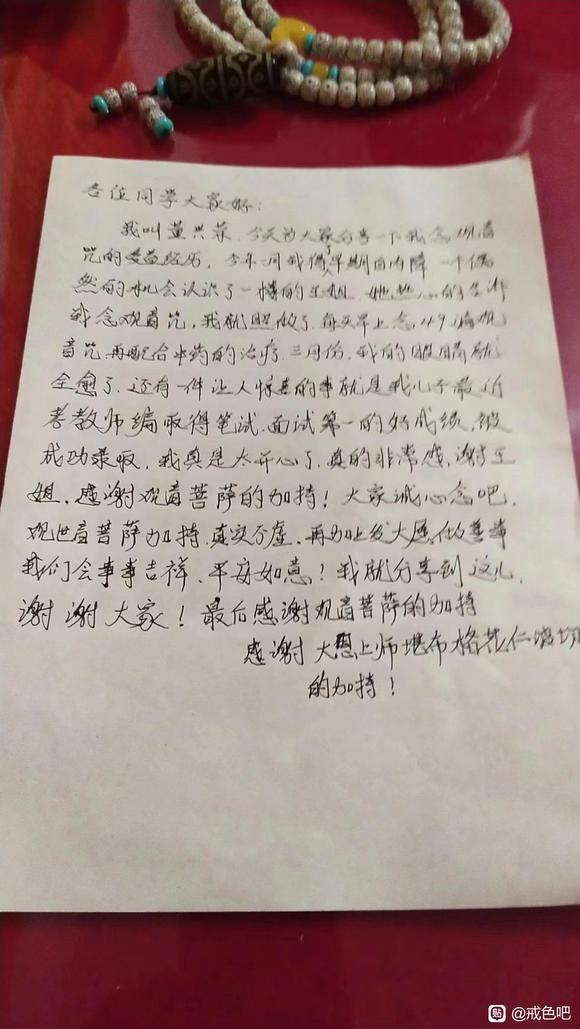 各位同学大家好:
我叫董兴荣,今天为大家分享一下我念观音
咒的受益经历,今年一月我得早期白内障,一个偶
然的机会认识了一楼的王姐,她热心的告诉
我念观音咒,我就照做了,每天早上念49遍观
音咒再配合中药的治疗,三月份,我的眼睛就
全愈了,还有一件让人惊喜的事就是我儿子最近
考教师编取得笔试、面试第一的好成绩,被
成功录取,我真是太开心了,真的非常感谢王
姐,感谢观音菩萨的加持!大家诚心念吧,
观世音菩萨加持,真实不虚,再加上发大愿,做善事
我们会事事吉祥,平安如意!我就分享到这儿,
谢谢大家!最后感谢观音菩萨的加持
感谢大恩上师堪布格花仁波切
的加持!
贴 @戒色吧